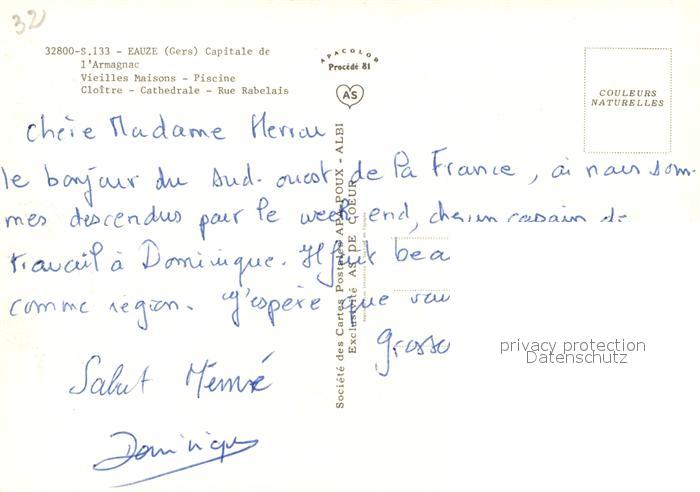 32
32800-S.133 - EAUZE (Gers) Capitale de
l'Armagnac
Vieilles Maisons - Piscine
Cloître - Cathedrale - Rue Rabelais
APACOLOR
Procédé 81
AS
COULEURS
NATURELLES
Société des Cartes Postales APA-POUX - ALBI
Exclusivité AS DE COEUR
Chère Madame
le bonjour du Sud-ouest de la France, où nous som-
mes descendus pour le week end, chez un copain de
travail à Dominique. Il fait bea
comme région. J'espère que vou
grosso
Salut
Dominique
privacy protection
Datenschutz